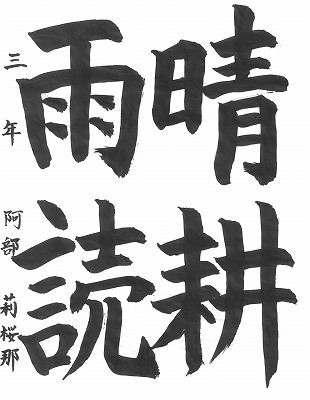 晴耕
雨読
三年 阿部 莉桜那